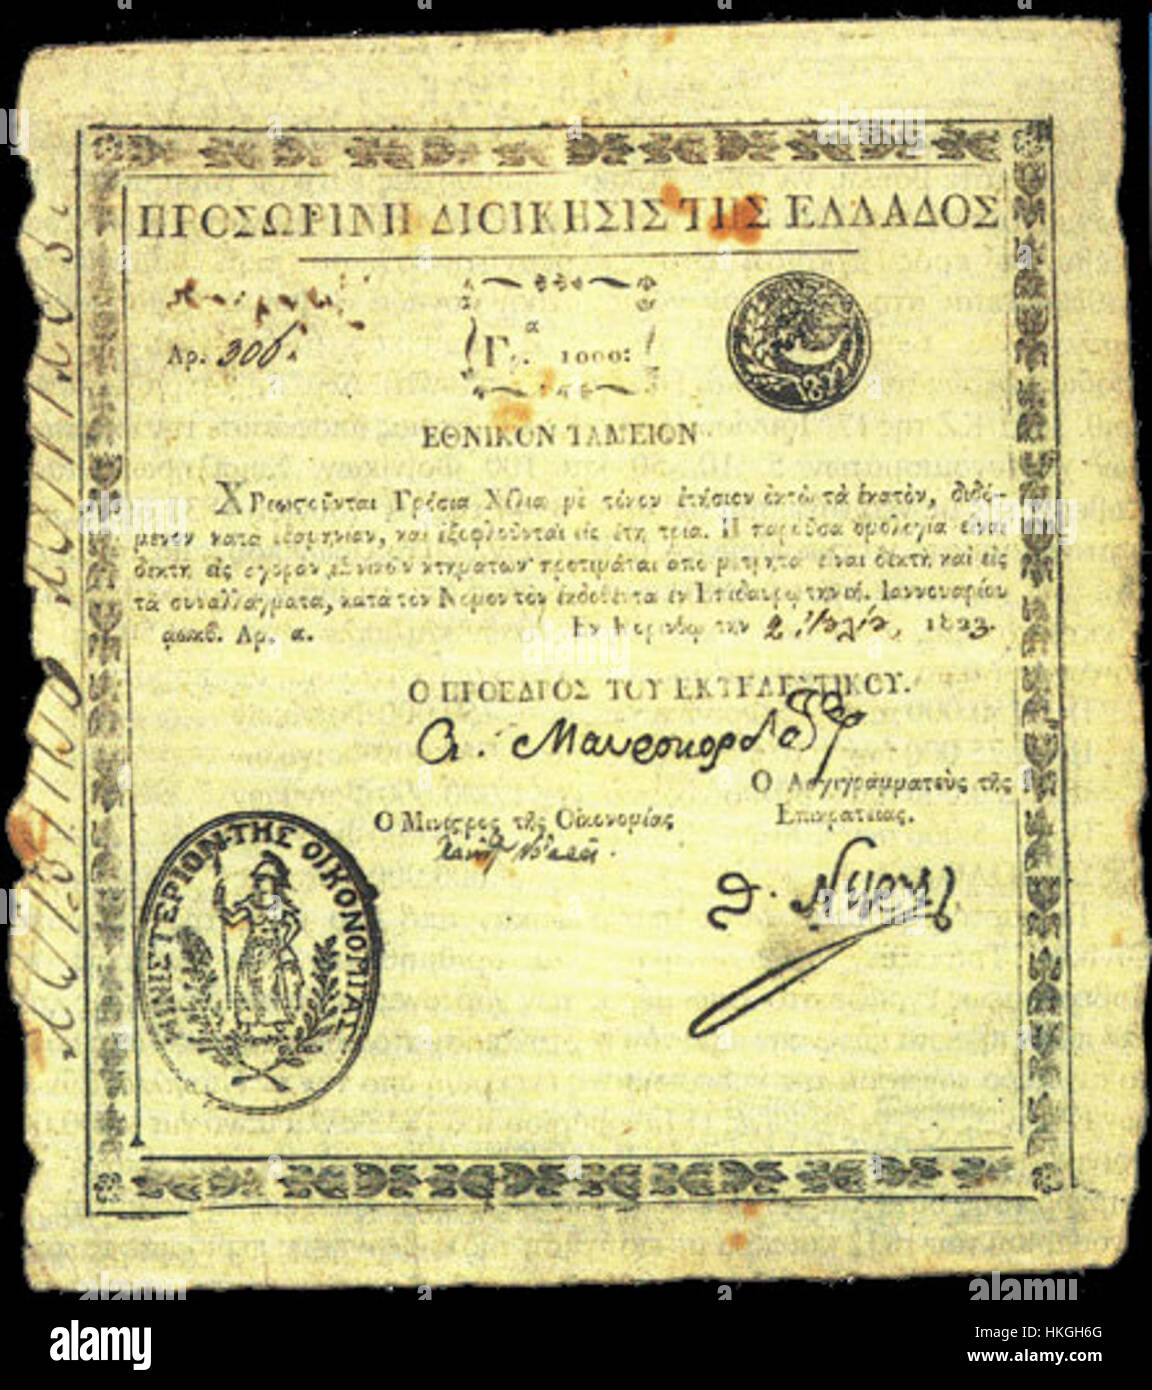 ΠΡΟΣΩΡΙΝΗ ΔΙΟΙΚΗΣΙΣ ΤΗΣ ΕΛΛΑΔΟΣ
Αρ. 306
α
Γρ. 1000:
1822
ΕΘΝΙΚΟΝ ΤΑΜΕΙΟΝ
ΧΡεωςοῦνται Γρόσια Χίλια μὲ τόκον ἐτήσιον ὀκτὼ τὰ ἑκατὸν, διδό-
μενον κατὰ ἑξαμηνίαν, καὶ ἐξοφλοῦνται εἰς ἔτη τρία. Ἡ παροῦσα ὁμολογία εἶναι
δεκτὴ εἰς ἀγορὰν ἐθνικῶν κτημάτων· προτιμᾶται ἀπὸ μετρητὰ· εἶναι δεκτὴ καὶ εἰς
τὰ συναλλάγματα, κατὰ τὸν Νόμον τὸν ἐκδοθέντα ἐν Ἐπιδαύρῳ τὴν Ἰαννουαρίου
αωκβ. Αρ. α. Εν Κορίνθῳ την 2 1823.
Ο ΠΡΟΕΔΡΟΣ ΤΟΥ ΕΚΤΕΛΕΣΤΙΚΟΥ.
Α. Μαυροκορδάτος
Ο Αρχιγραμματεὺς τῆς
Επικρατείας.
Ο Μινίςρος τῆς Οἰκονομίας
Θ. Νέγρης
ΜΙΝΙΣΤΕΡΙΟΝ ΤΗΣ ΟΙΚΟΝΟΜΙΑΣ
alamy
Image ID: HKGH6G
www.alamy.com